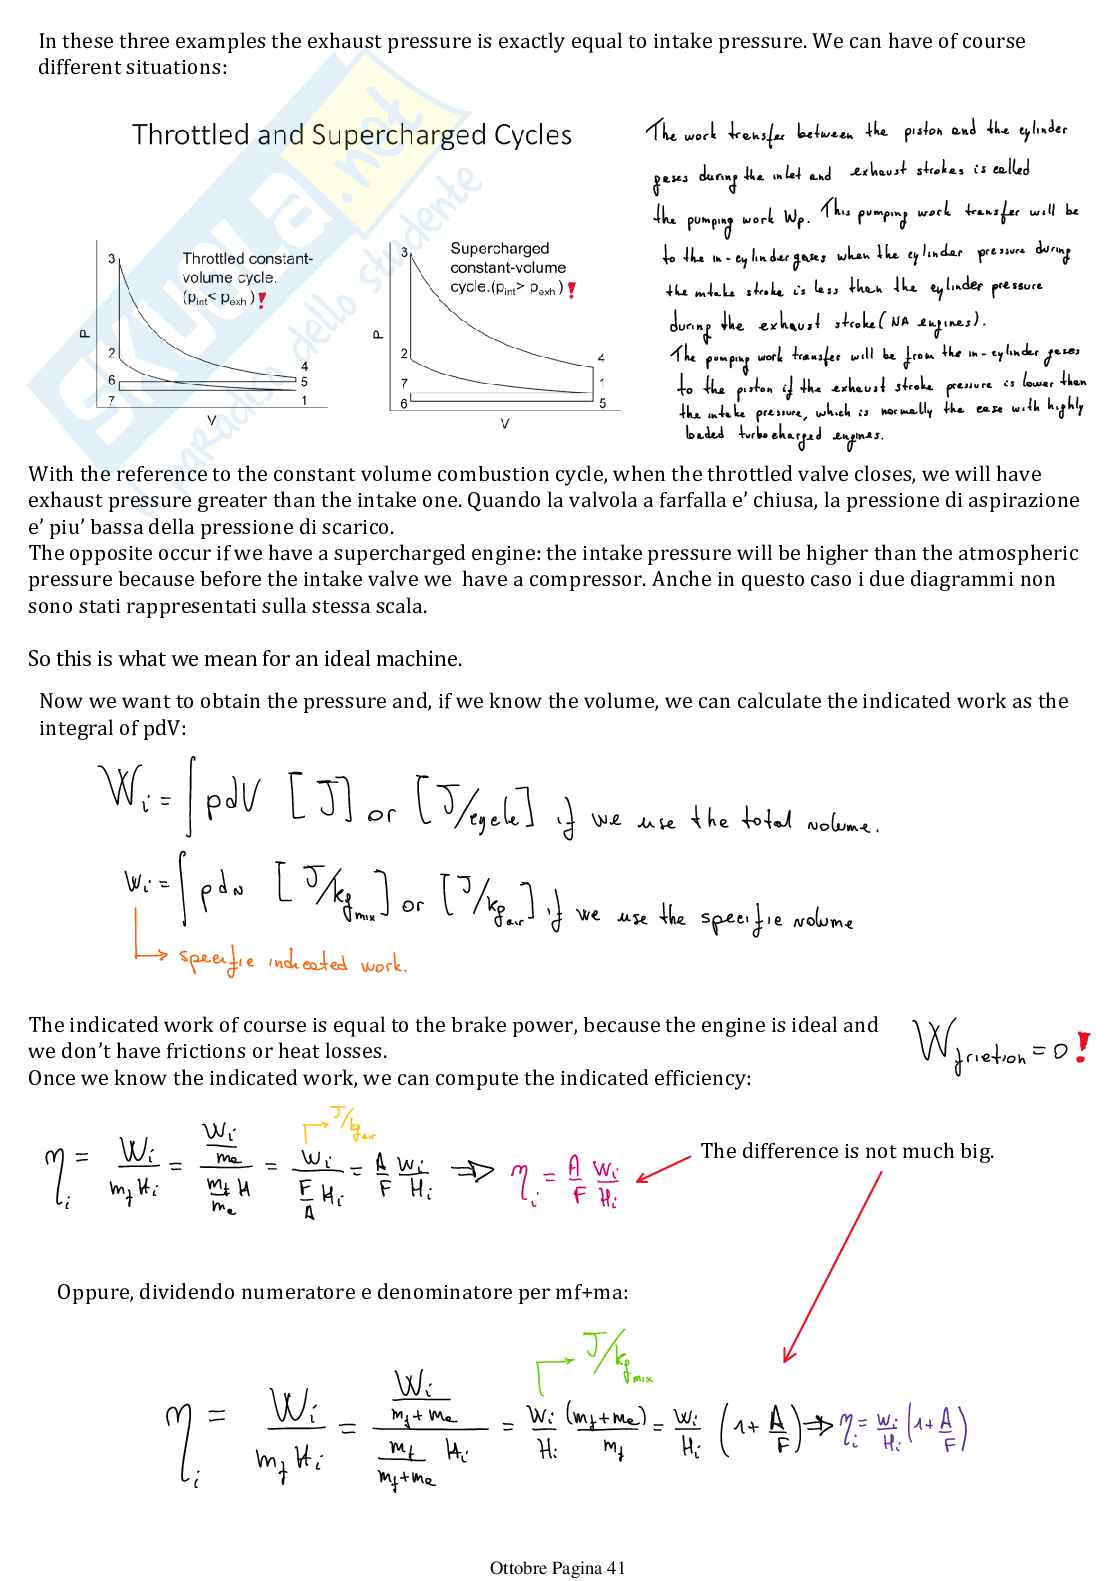 In these three examples the exhaust pressure is exactly equal to intake pressure. We can have of course
different situations:
Throttled and Supercharged Cycles
The work transfer between the piston and the cylinder
gases during the inlet and exhaust strokes is called
the pumping work Wp. This pumping work transfer will be
to the in-cylinder gases when the cylinder pressure during
the intake stroke is less then the cylinder pressure
during the exhaust stroke (NA engines).
The pumping work transfer will be from the in-cylinder gases
to the piston if the exhaust stroke pressure is lower then
the intake pressure, which is normally the case with highly
loaded turbocharged engines.
Throttled constant-
volume cycle.
(pint< pexh)!
3
2
6
7
4
5
1
P
V
Supercharged
constant-volume
cycle.(pint> pexh)!
3
2
7
6
4
1
5
P
V
SKUOLA.net
il paradiso dello studente
With the reference to the constant volume combustion cycle, when the throttled valve closes, we will have
exhaust pressure greater than the intake one. Quando la valvola a farfalla e' chiusa, la pressione di aspirazione
e' piu' bassa della pressione di scarico.
The opposite occur if we have a supercharged engine: the intake pressure will be higher than the atmospheric
pressure because before the intake valve we have a compressor. Anche in questo caso i due diagrammi non
sono stati rappresentati sulla stessa scala.
So this is what we mean for an ideal machine.
Now we want to obtain the pressure and, if we know the volume, we can calculate the indicated work as the
integral of pdV:
Wi = ∫ pdV [J] or [J/cycle] if we use the total volume.
wi = ∫ pdv [J/kg mix] or [J/kg air] if we use the specific volume
specific indicated work.
The indicated work of course is equal to the brake power, because the engine is ideal and
we don't have frictions or heat losses.
W friction = 0 !
Once we know the indicated work, we can compute the indicated efficiency:
J/kg air
ηi = Wi / mf Hi = (Wi/ma) / (mf/ma H) = wi / (F/A Hi) = A/F wi/Hi ⇒ ηi = A/F wi/Hi
The difference is not much big.
Oppure, dividendo numeratore e denominatore per mf+ma:
J/kg mix
ηi = Wi / mf Hi = (Wi/(mf+ma)) / (mf/(mf+ma) Hi) = wi/Hi (mf+ma)/mf = wi/Hi (1+A/F) ⇒ ηi = wi/Hi (1+A/F)
Ottobre Pagina 41